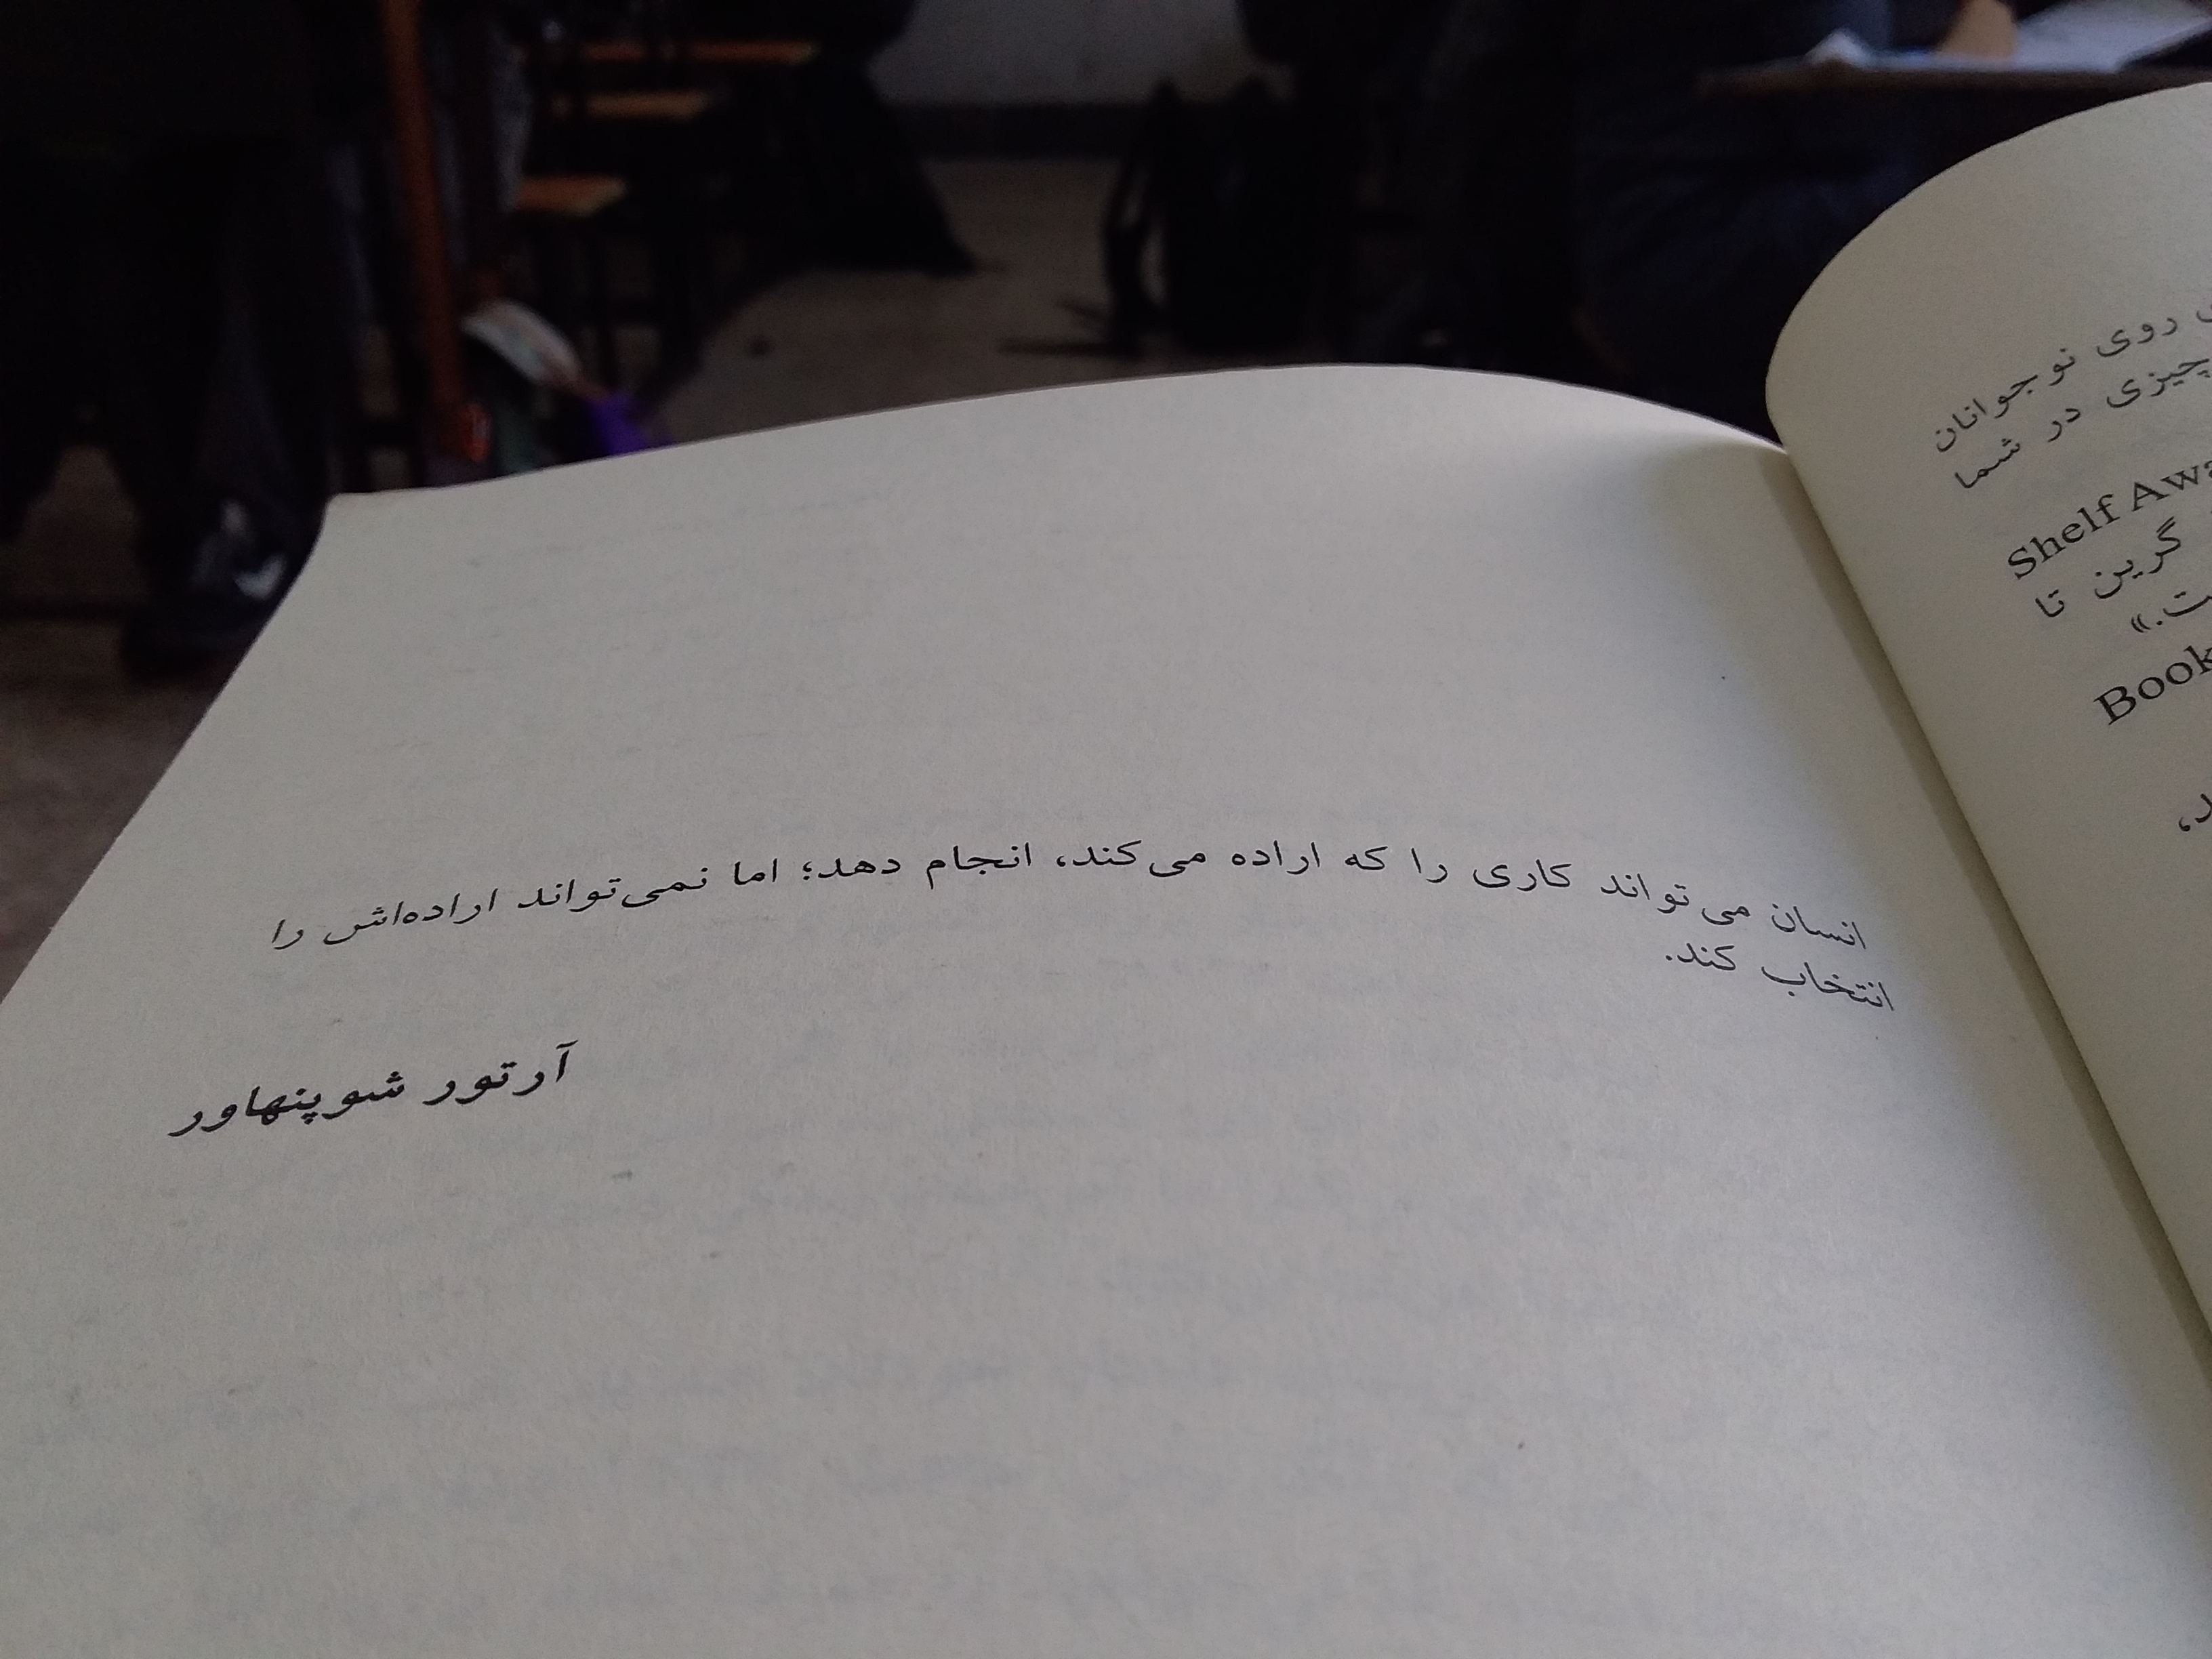 انسان می‌تواند کاری را که اراده می‌کند، انجام دهد؛ اما نمی‌تواند اراده‌اش را
انتخاب کند.
آرتور شوپنهاور
روی نوجوانان
چیزی در شما
Shelf
گرین تا
Book